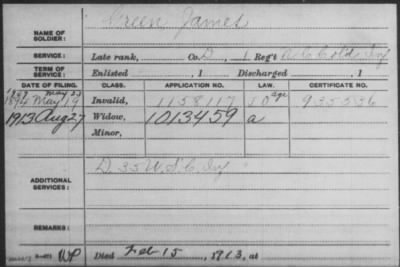 Green James
NAME OF SOLDIER:
SERVICE: Late rank, Co. D, 1 Reg't N.C. Col'd Inf
TERM OF SERVICE: Enlisted , 1 Discharged , 1
DATE OF FILING. CLASS. APPLICATION NO. LAW. CERTIFICATE NO.
May 23
189 May 19 Invalid, 1158117 10 age 935536
1913 Aug 27 Widow, 1013459 a
Minor,
D. 35 U.S.C. Inf
ADDITIONAL SERVICES:
REMARKS:
WP Died Feb 15, 1913, at